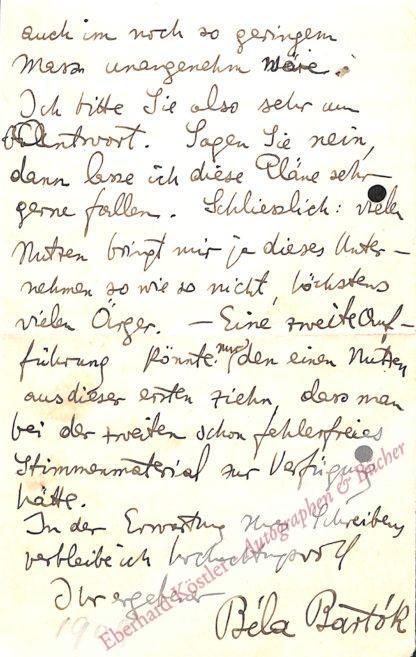 auch im noch so geringem
Mass unangenehm wäre.
Ich bitte Sie also sehr um
Antwort. Sagen Sie nein,
dann lasse ich diese Pläne sehr
gerne fallen. Schliesslich: viele
Nutzen bringt mir ja dieses Unter-
nehmen so wie so nicht, höchstens
vielen Ärger. — Eine zweite Auf-
führung könnte nur den einen Nutzen
aus dieser ersten ziehn, dass man
bei der zweiten schon fehlerfreies
Stimmenmaterial zur Verfügung
hätte.
In der Erwartung Schreibens
verbleibe ich hochachtungsvoll
Ihr ergebener
Béla Bartók
Eberhard Köstler Autographen & Bücher